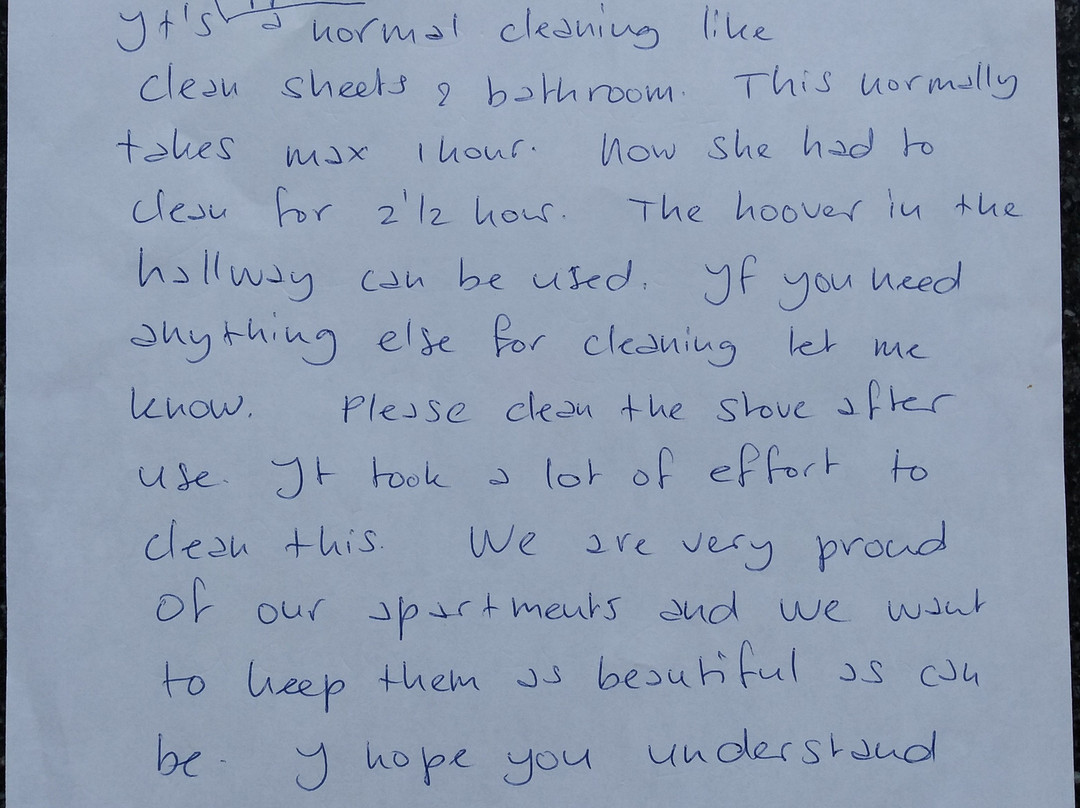 It's a normal cleaning like
clean sheets & bathroom. This normally
takes max 1 hour. Now she had to
clean for 2 1/2 hour. The hoover in the
hallway can be used. If you need
anything else for cleaning let me
know. Please clean the stove after
use. It took a lot of effort to
clean this. We are very proud
of our apartments and we want
to keep them as beautiful as can
be. I hope you understand